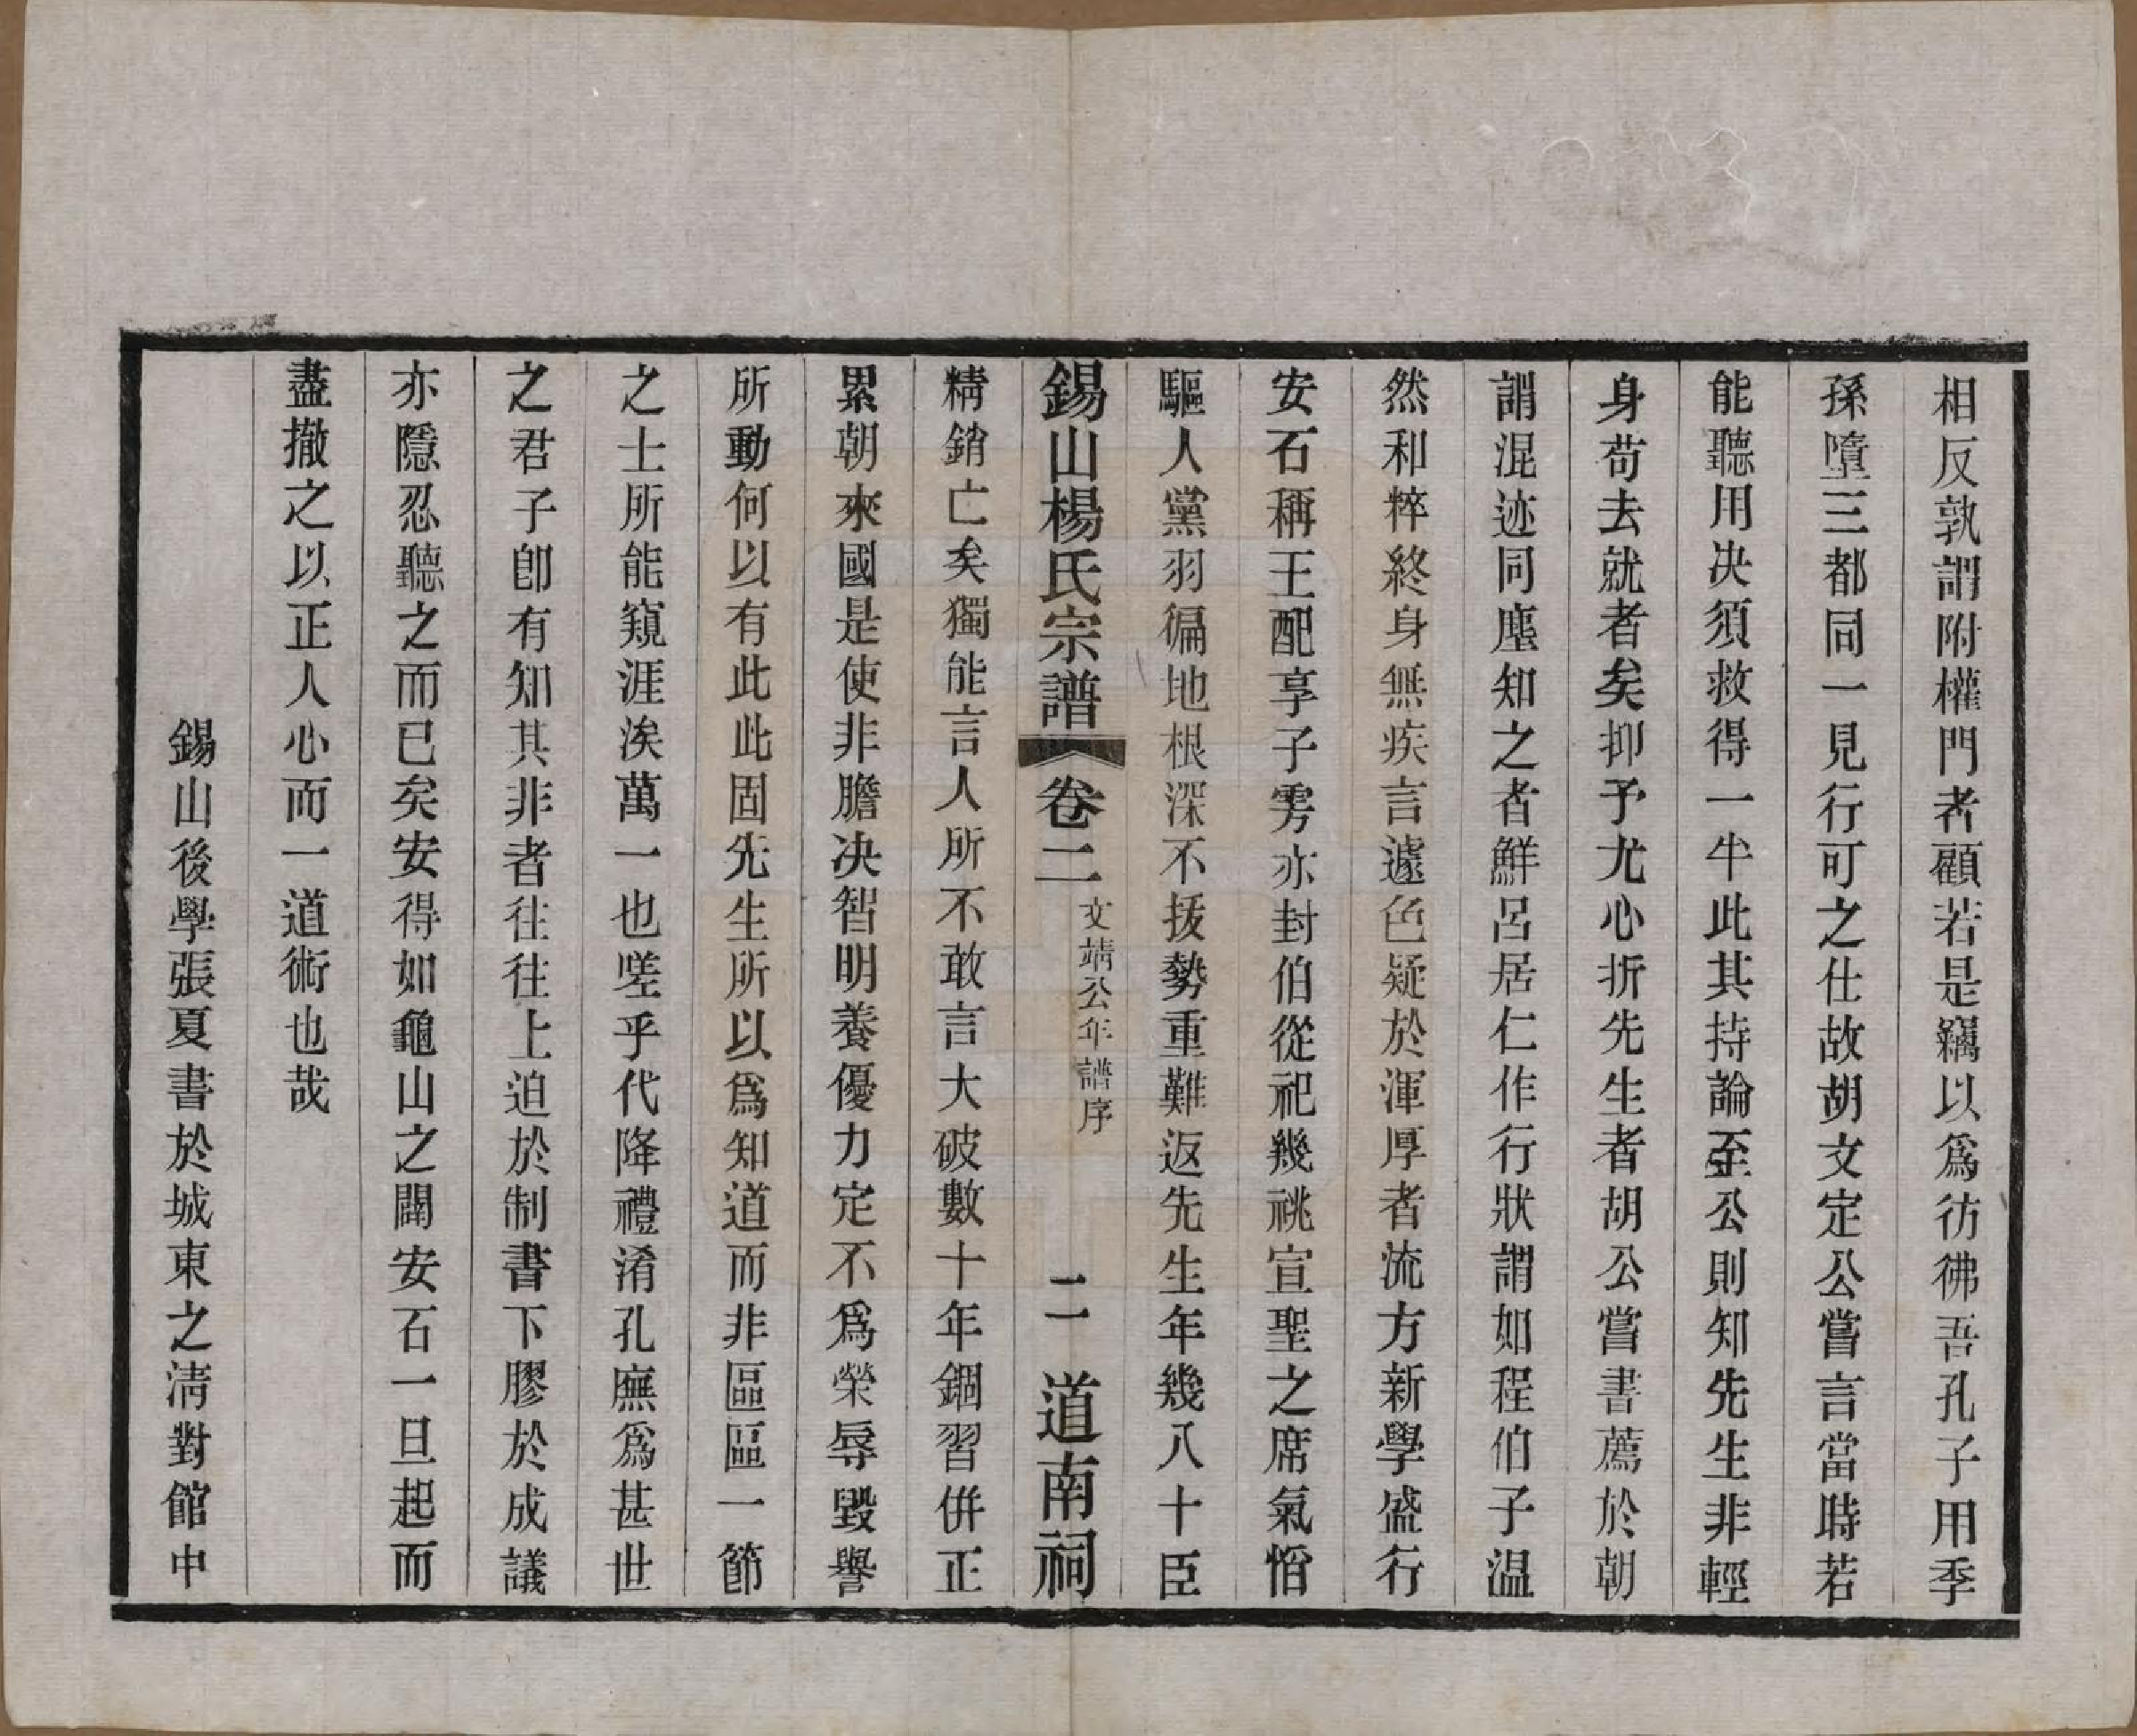 相反孰謂附權門者顧若是竊以爲彷彿吾孔子用季
孫墮三都同一見行可之仕故胡文定公嘗言當時若
能聽用决須救得一半此其持論至公則知先生非輕
身苟去就者矣抑予尤心折先生者胡公嘗書薦於朝
謂混迹同塵知之者鮮呂居仁作行狀謂如程伯子温
然和粹終身無疾言遽色疑於渾厚者流方新學盛行
安石稱王配享子雱亦封伯從祀幾祧宣聖之席氣惛
驅人黨羽徧地根深不拔勢重難返先生年幾八十臣
錫山楊氏宗譜 卷二 文靖公年譜序 二 道南祠
精銷亡矣獨能言人所不敢言大破數十年錮習併正
累朝來國是使非膽决智明養優力定不爲榮辱毀譽
所動何以有此此固先生所以爲知道而非區區一節
之士所能窺涯涘萬一也嗟乎代降禮淆孔廡爲甚世
之君子卽有知其非者往往上迫於制書下膠於成議
亦隱忍聽之而已矣安得如龜山之闢安石一旦起而
盡撤之以正人心而一道術也哉
錫山後學張夏書於城東之淸對館中